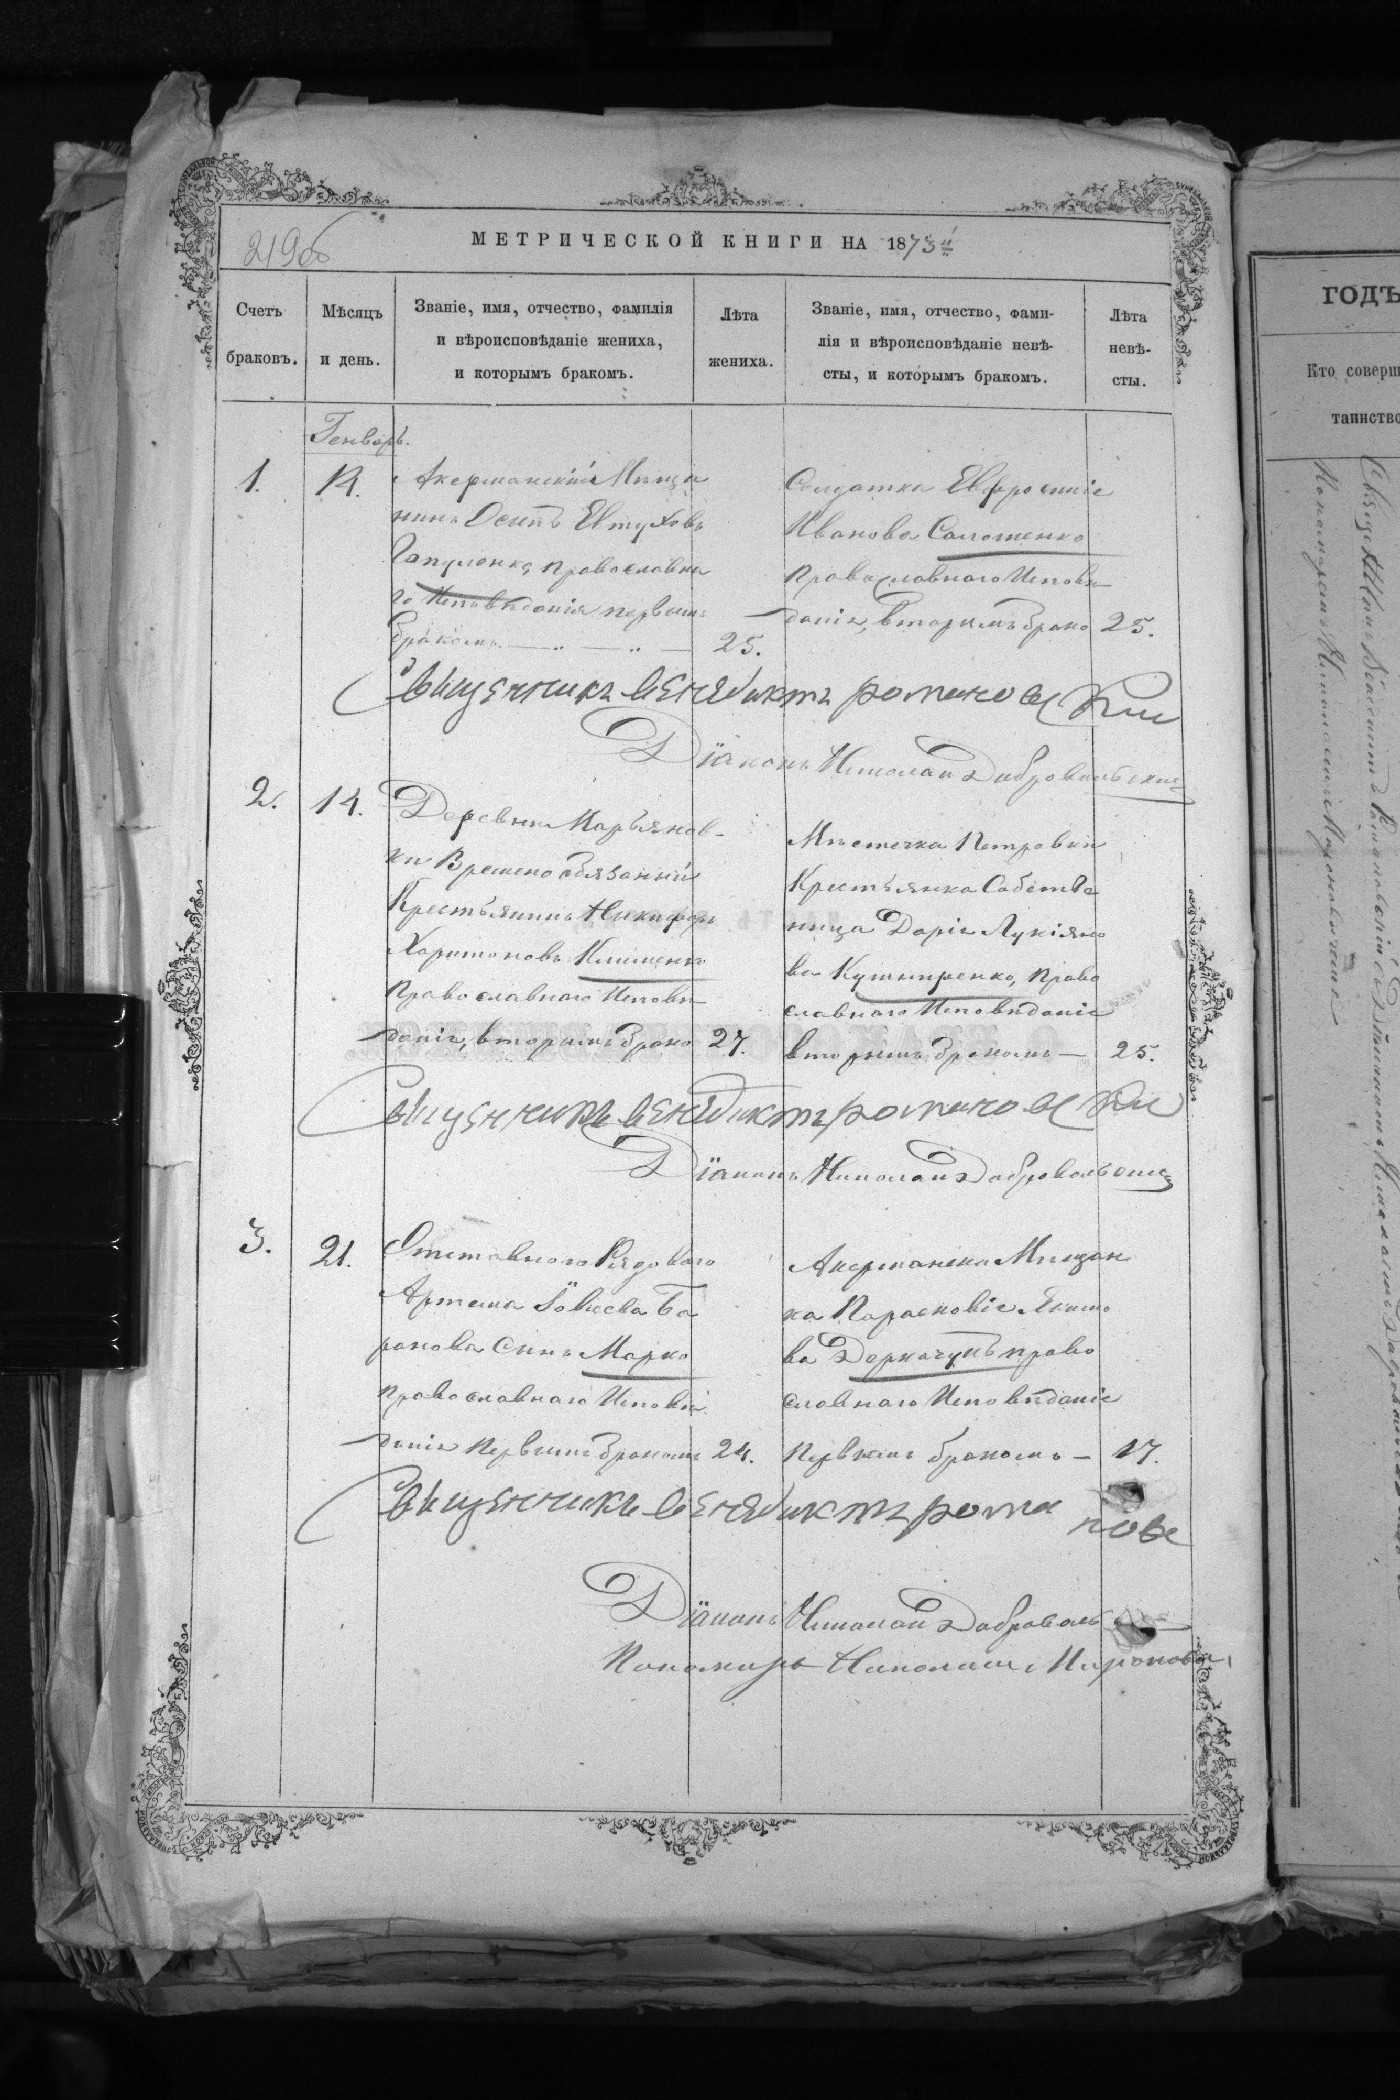 219об
МЕТРИЧЕСКОЙ КНИГИ НА 1873й
Счетъ браковъ.
Мѣсяцъ и день.
Званіе, имя, отчество, фамилія
и вѣроисповѣданіе жениха,
и которымъ бракомъ.
Лѣта
жениха.
Званіе, имя, отчество, фами-
лія и вѣроисповѣданіе невѣ-
сты, и которымъ бракомъ.
Лѣта
невѣ-
сты.
Генварь.
1.
14.
Акерманскій Мѣща
нинъ Осипъ Евтуховъ
Гапуленко, православна
го Исповѣданія первымъ
бракомъ. — „ — „ — 25.
Солдатка Евфросинія
Иванова Саломенко
Православнаго Исповѣ
данія, вторымъ брако 25.
Священникъ Венедиктъ Романовскій
Діаконъ Николай Добровольскій
2.
14.
Деревни Марьянов-
ки Временообязанный
Крестьянинъ Никифоръ
Харитоновъ Клименко
Православнаго Исповѣ
данія, вторымъ брако 27.
Мѣстечка Петровки
Крестьянка Собстве
ница Дарія Лукіяно
ва Кушниренко, Право
славнаго Исповѣданія
вторымъ бракомъ — 25.
Священникъ Венедиктъ Романовскій
Діаконъ Николай Добровольскій
3.
21.
Отставнаго Рядоваго
Артема Іовлева Ба
ранова Сынъ Марко
Православнаго Исповѣ
данія Первымъ бракомъ 24.
Акерманска Мѣщан
ка Парасковія Якимо
ва Деркачунъ право
славнаго Исповѣданія
Первымъ бракомъ — 17.
Священникъ Венедиктъ Романовс
Діаконъ Николай Доброволь
Пономарь Николай Миронови
ГОДЪ
Кто соверш
таинство